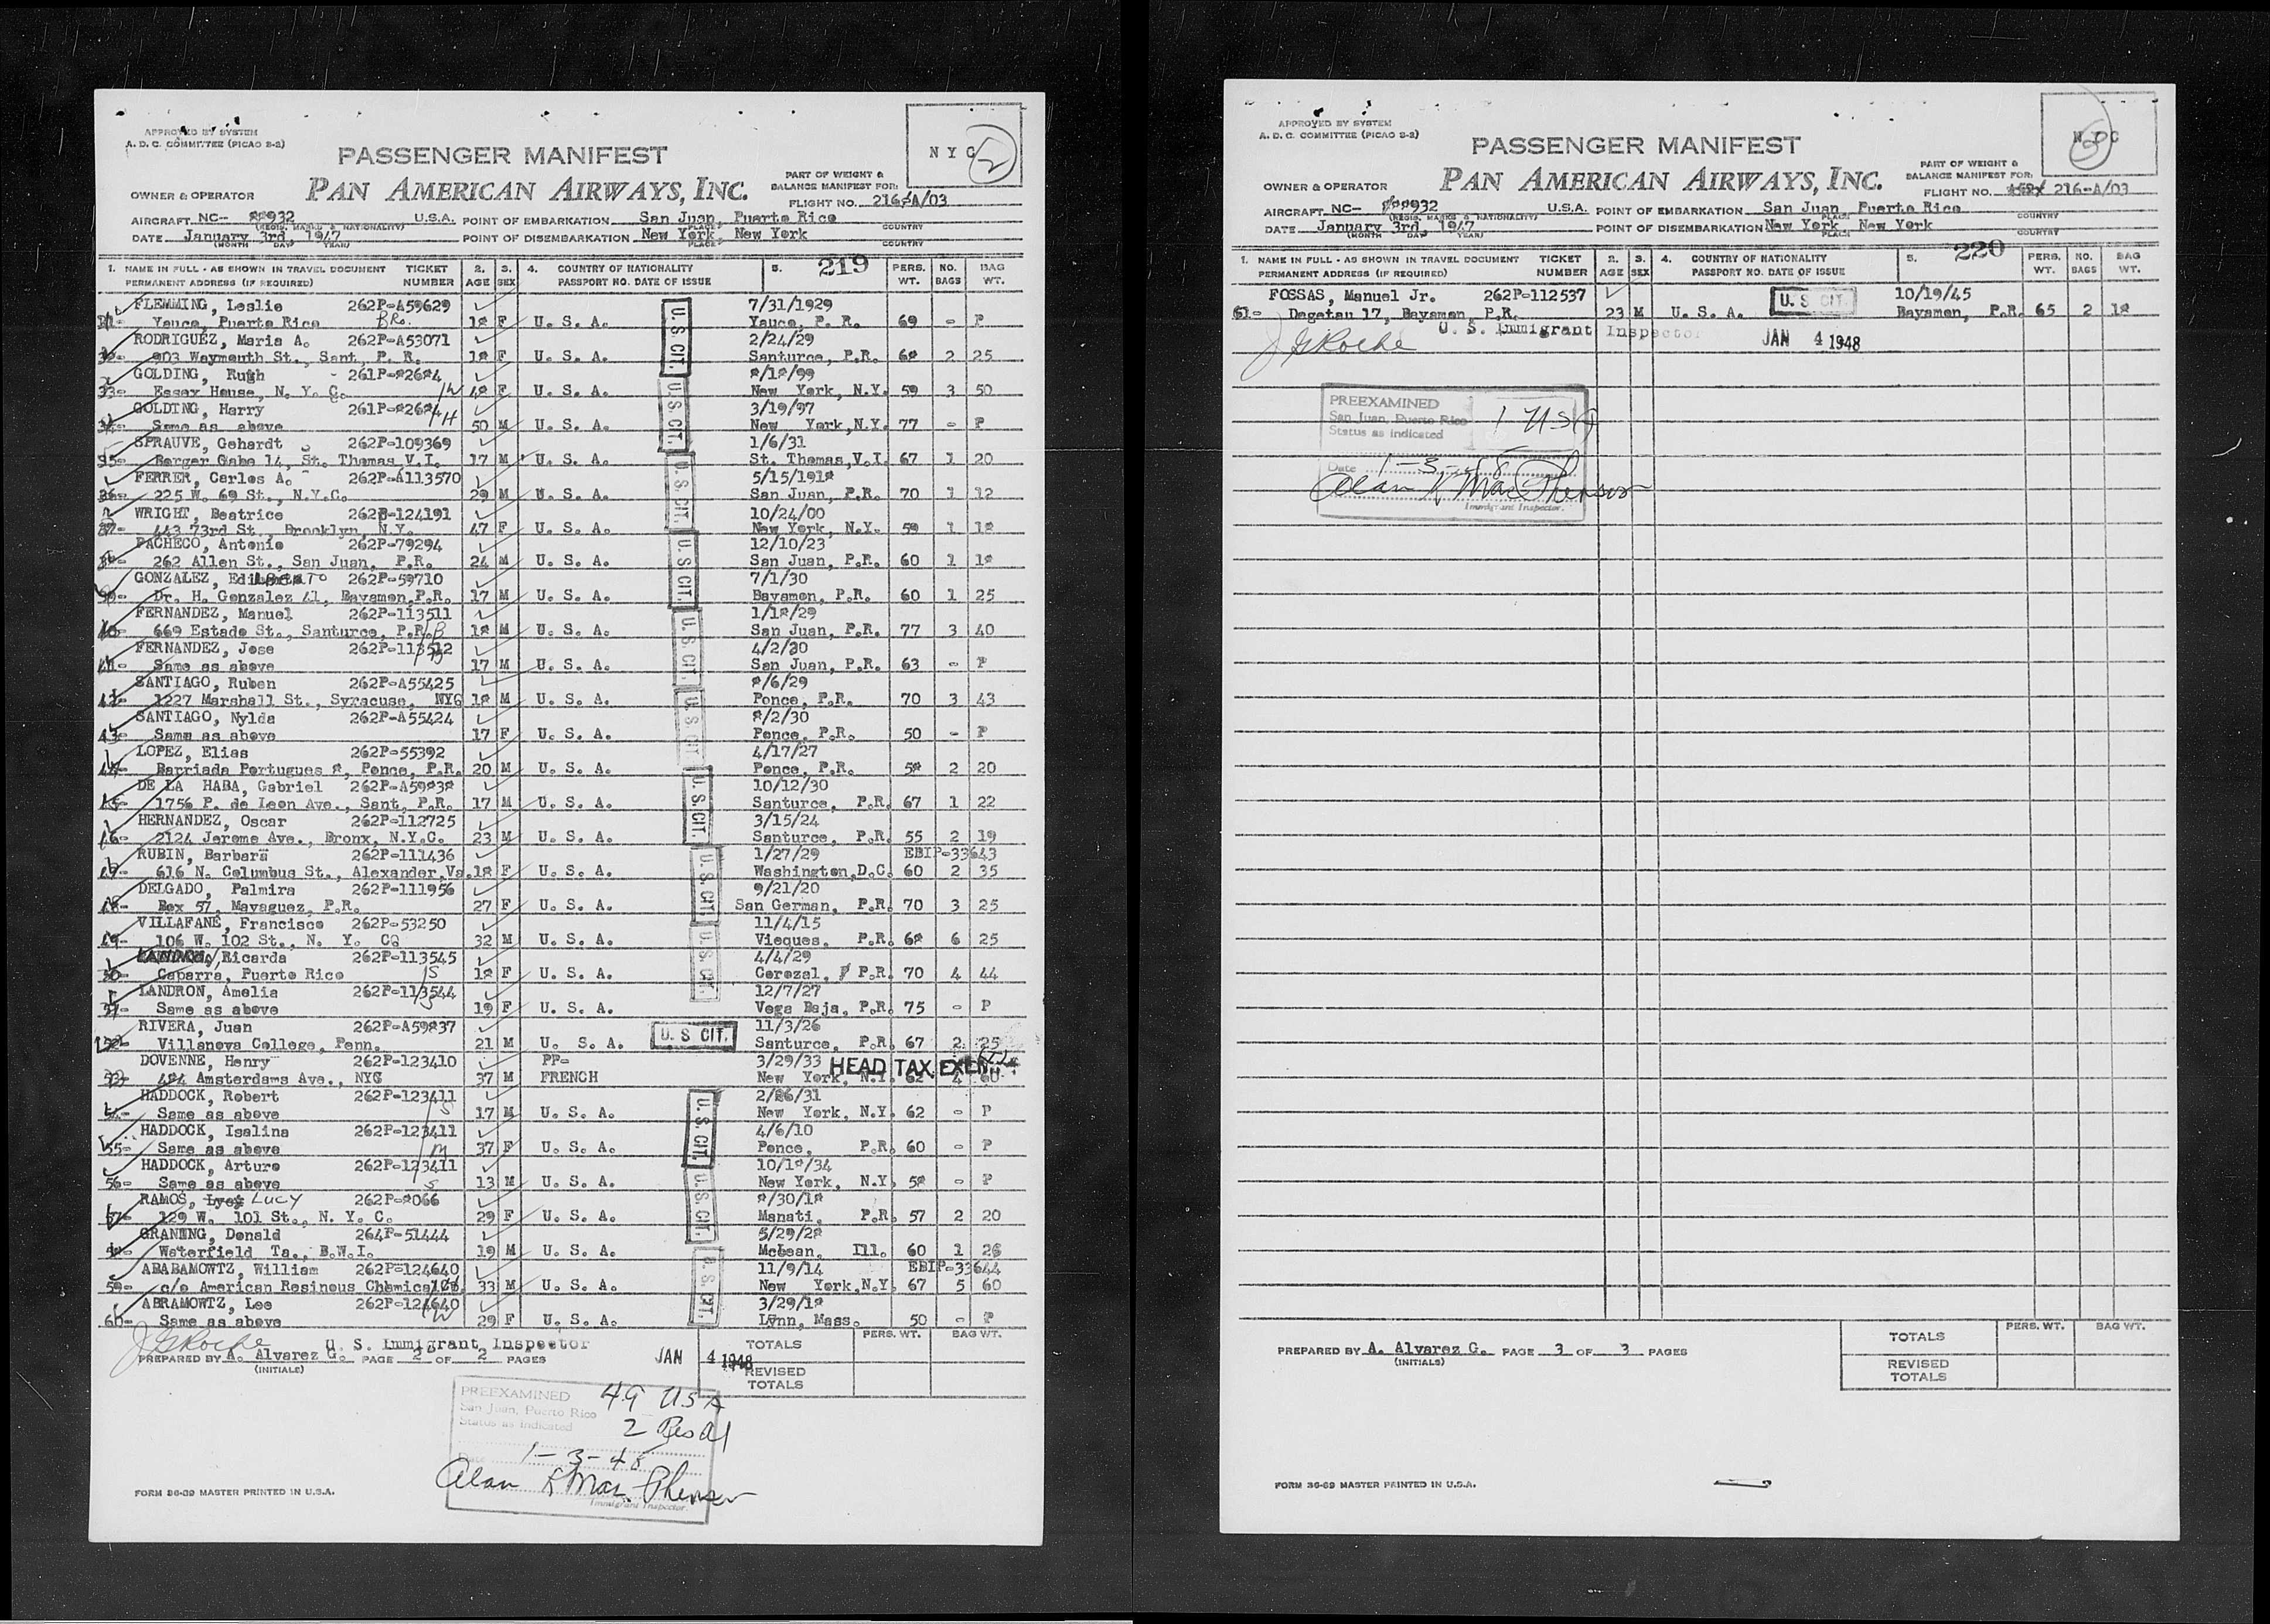 APPROVED BY SYSTEM
A. D. C. COMMITTEE (PICAO 2-2)
PASSENGER MANIFEST
NYC
2
PAN AMERICAN AIRWAYS, INC.
PART OF WEIGHT &
BALANCE MANIFEST FOR:
OWNER & OPERATOR
FLIGHT NO. 216-A/03
AIRCRAFT NC- 88932 U.S.A. POINT OF EMBARKATION San Juan, Puerto Rico
(REGIS. MARKS & NATIONALITY) PLACE COUNTRY
DATE January 3rd, 1947 POINT OF DISEMBARKATION New York, New York
(MONTH DAY YEAR) PLACE COUNTRY
1. NAME IN FULL - AS SHOWN IN TRAVEL DOCUMENT TICKET 2. 3. 4. COUNTRY OF NATIONALITY 5. 219 PERS. NO. BAG
PERMANENT ADDRESS (IF REQUIRED) NUMBER AGE SEX PASSPORT NO. DATE OF ISSUE WT. BAGS WT.
FLEMMING, Leslie 262P-A59629 7/31/1929
31- Yauco, Puerto Rico 18 F U. S. A. U.S. CIT. Yauco, P. R. 69 - P
RODRIGUEZ, Maria A. 262P-A53071 2/24/29
32- 903 Waymouth St., Sant, P. R. 18 F U. S. A. Santurce, P.R. 68 2 25
GOLDING, Rugh 261P-82684 8/18/99
33- Essex House, N. Y. C. W 48 F U. S. A. U.S. CIT. New York, N.Y. 59 3 50
GOLDING, Harry 261P-82684 3/19/97
34- Same as above H 50 M U. S. A. New York, N.Y. 77 - P
SPRAUVE, Gehardt 262P-109369 1/6/31
35- Berger Gabe 14, St. Thomas, V.I. 17 M U. S. A. St. Thomas, V.I. 67 1 20
FERRER, Carlos A. 262P-A113570 5/15/1918
36- 225 W. 69 St., N.Y.C. 29 M U. S. A. U.S. CIT. San Juan, P.R. 70 1 12
WRIGHT, Beatrice 262P-124191 10/24/00
37- 443 73rd St., Brooklyn, N.Y. 47 F U. S. A. New York, N.Y. 59 1 18
PACHECO, Antonio 262P-79294 12/10/23
38- 262 Allen St., San Juan, P.R. 24 M U. S. A. U.S. CIT. San Juan, P.R. 60 1 18
GONZALEZ, 262P-59710 7/1/30
39- Dr. H. Gonzalez 41, Bayamon, P.R. 17 M U. S. A. Bayamon, P.R. 60 1 25
FERNANDEZ, Manuel 262P-113511 1/18/29
40- 669 Estado St., Santurce, P.R. B 18 M U. S. A. U.S. CIT. San Juan, P.R. 77 3 40
FERNANDEZ, Jose 262P-113512 4/2/30
41- Same as above 17 M U. S. A. San Juan, P.R. 63 - P
SANTIAGO, Ruben 262P-A55425 8/6/29
42- 1227 Marshall St., Syracuse, NYC 18 M U. S. A. U.S. CIT. Ponce, P.R. 70 3 43
SANTIAGO, Nylda 262P-A55424 8/2/30
43- Same as above 17 F U. S. A. Ponce, P.R. 50 - P
LOPEZ, Elias 262P-55392 4/17/27
44- Barriada Portugues 8, Ponce, P.R. 20 M U. S. A. Ponce, P.R. 58 2 20
DE LA HABA, Gabriel 262P-A59838 10/12/30
45- 1756 P. de Leon Ave., Sant, P.R. 17 M U. S. A. U.S. CIT. Santurce, P.R. 67 1 22
HERNANDEZ, Oscar 262P-112725 3/15/24
46- 2124 Jerome Ave., Bronx, N.Y.C. 23 M U. S. A. Santurce, P.R. 55 2 19
RUBIN, Barbara 262P-111436 1/27/29 EBIP-33643
47- 616 N. Columbus St., Alexander, Va. 18 F U. S. A. U.S. CIT. Washington, D.C. 60 2 35
DELGADO, Palmira 262P-111956 9/21/20
48- Box 57, Mayaguez, P.R. 27 F U. S. A. San German, P.R. 70 3 25
VILLAFANE, Francisco 262P-53250 11/4/15
49- 106 W. 102 St., N. Y. C. 32 M U. S. A. U.S. CIT Vieques, P.R. 68 6 25
Ricarda 262P-113545 4/4/29
50- Caparra, Puerto Rico S 18 F U. S. A. Corozal, P.R. 70 4 44
LANDRON, Amelia 262P-113544 12/7/27
51- Same as above S 19 F U. S. A. Vega Baja, P.R. 75 - P
RIVERA, Juan 262P-A59837 11/3/26
52- Villanova College, Penn. 21 M U. S. A. U. S CIT. Santurce, P.R. 67 2 25
DOVENNE, Henry 262P-123410 PP- 3/29/33 HEAD TAX EXEM
53- 484 Amsterdams Ave., NYC 37 M FRENCH New York, N.Y. 62 4 60
HADDOCK, Robert 262P-123411 2/26/31
54- Same as above S 17 M U. S. A. U.S. CIT. New York, N.Y. 62 - P
HADDOCK, Isalina 262P-123411 4/6/10
55- Same as above M 37 F U. S. A. Ponce, P.R. 60 - P
HADDOCK, Arturo 262P-123411 10/18/34
56- Same as above S 13 M U. S. A. U.S. CIT. New York, N.Y. 58 - P
RAMOS, LUCY 262P-8066 8/30/18
57- 129 W. 101 St., N. Y. C. 29 F U. S. A. Manati, P.R. 57 2 20
GRANING, Donald 264P-51444 5/29/28
58- Waterfield Ta., B.W.I. 19 M U. S. A. McLean, Ill. 60 1 26
ABABAMOWTZ, William 262P-124640 11/9/14 EBIP-33644
59- c/o American Resinous Chemical 33 M U. S. A. U.S. CIT. New York, N.Y. 67 5 60
ABRAMOWTZ, Lee 262P-124640 3/29/18
60- Same as above W 29 F U. S. A. Lynn, Mass. 50 - P
J G Roche U. S. Immigrant Inspector TOTALS PERS. WT. BAG WT.
PREPARED BY A. Alvarez G. PAGE 2 OF 2 PAGES JAN 4 1948
(INITIALS) REVISED TOTALS
PREEXAMINED 49 USA
San Juan, Puerto Rico
Status as indicated 2 Res Al
Date 1-3-48
Alan K MacPherson
Immigrant Inspector.
FORM 36-69 MASTER PRINTED IN U.S.A.
APPROVED BY SYSTEM
A. D. C. COMMITTEE (PICAO 2-2)
PASSENGER MANIFEST
NYC
PAN AMERICAN AIRWAYS, INC.
PART OF WEIGHT &
BALANCE MANIFEST FOR:
OWNER & OPERATOR
FLIGHT NO. 216-A/03
AIRCRAFT NC- 88932 U.S.A. POINT OF EMBARKATION San Juan, Puerto Rico
(REGIS. MARKS & NATIONALITY) PLACE COUNTRY
DATE January 3rd, 1947 POINT OF DISEMBARKATION New York, New York
(MONTH DAY YEAR) PLACE COUNTRY
1. NAME IN FULL - AS SHOWN IN TRAVEL DOCUMENT TICKET 2. 3. 4. COUNTRY OF NATIONALITY 5. 220 PERS. NO. BAG
PERMANENT ADDRESS (IF REQUIRED) NUMBER AGE SEX PASSPORT NO. DATE OF ISSUE WT. BAGS WT.
FOSSAS, Manuel Jr. 262P-112537 10/19/45
61- Degetau 17, Bayamon, P.R. 23 M U. S. A. U. S CIT. Bayamon, P.R. 65 2 18
J G Roche U. S. Immigrant Inspector JAN 4 1948
PREEXAMINED
San Juan, Puerto Rico 1 USA
Status as indicated
Date 1-3-48
Alan K MacPherson
Immigrant Inspector.
TOTALS PERS. WT. BAG WT.
PREPARED BY A. Alvarez G. PAGE 3 OF 3 PAGES
(INITIALS) REVISED TOTALS
FORM 36-69 MASTER PRINTED IN U.S.A.